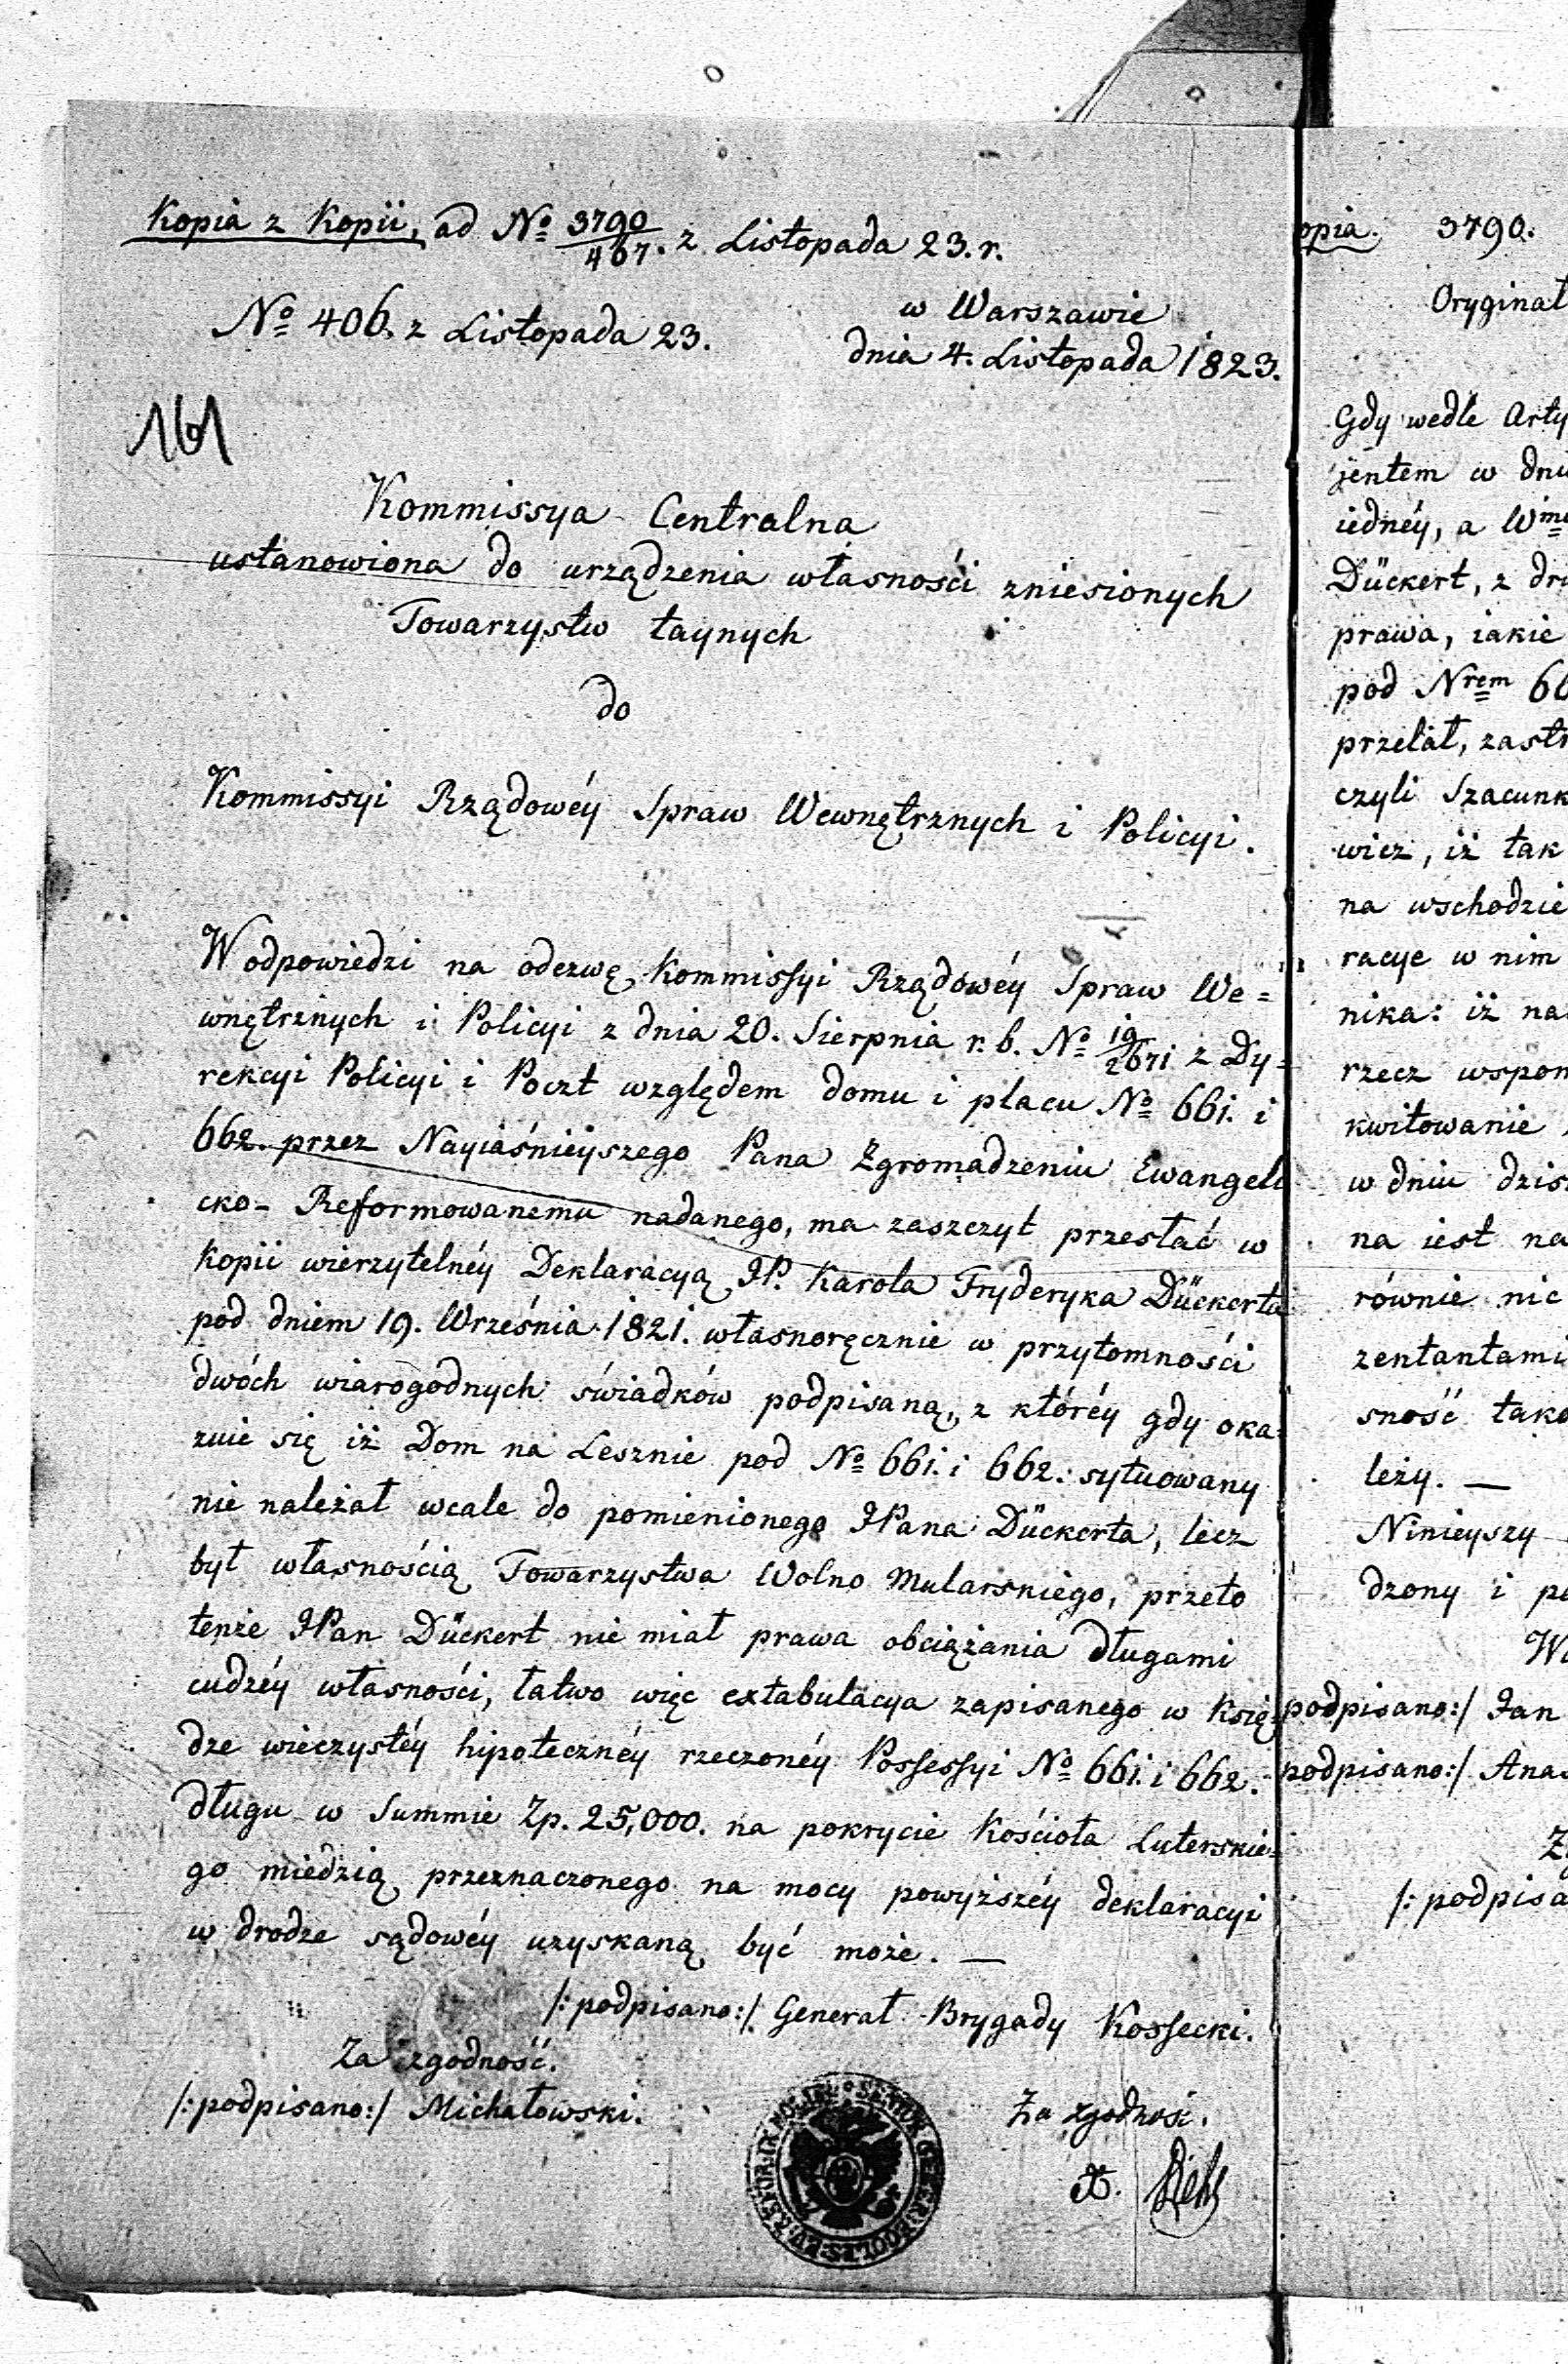 Kopia z Kopii, ad No 3790/467. z Listopada 23. r.
No 406. z Listopada 23.
w Warszawie
dnia 4. Listopada 1823.
161
Kommissya Centralna
ustanowiona do urządzenia własności zniesionych
Towarzystw taynych
do
Kommissyi Rządowéy Spraw Wewnętrznych i Policyi.
W odpowiedzi na odezwę Kommissyi Rządowéy Spraw We=
wnętrznych i Policyi z dnia 20. Sierpnia r. b. No 19/2671 z Dy=
rekcyi Policyi i Poczt względem domu i placu No 661. i
662. przez Nayiaśnieyszego Pana Zgromadzeniu Ewangeli
cko-Reformowanemu nadanego, ma zaszczyt przesłać w
kopii wierzytelnéy Deklaracyą JP. Karola Fryderyka Dückerta
pod dniem 19. Września 1821. własnoręcznie w przytomności
dwóch wiarogodnych świadków podpisaną, z któréy gdy oka=
zuie się iż Dom na Lesznie pod No 661. i 662. sytuowany
nie należał wcale do pomienionego JPana Dückerta, lecz
był własnością Towarzystwa Wolno Mularskiego, przeto
tenże JPan Dückert nie miał prawa obciążania długami
cudzéy własności, łatwo więc extabulacya zapisanego w Księ=
dze wieczystéy hipotecznéy rzeczonéy Possessyi No 661. i 662.
długu w Summie Zp. 25,000. na pokrycie Kościoła Luterskie=
go miedzią przeznaczonego na mocy powyższéy deklaracyi
w drodze sądowéy uzyskaną być może. —
/:podpisano:/ Generał Brygady Kossecki.
Za zgodność.
/:podpisano:/ Michałowski.
Za zgodność.
opia. 3790.
Oryginał
Gdy wedle Arty
jentem w dniu
iednéy, a Wme
Dückert, z dru
prawa, iakie
pod Nrem 66
przelał, zastr
czyli Szacunk
wicz, iż tak
na wschodzie
racye w nim
nika: iż na
rzecz wspom
kwitowanie
w dniu dzis
na iest na
równie nie
zentantami
sność tako
leży. —
Ninieyszy
dzony i po
podpisano:/ Jan
podpisano:/ Anas
/:podpisa